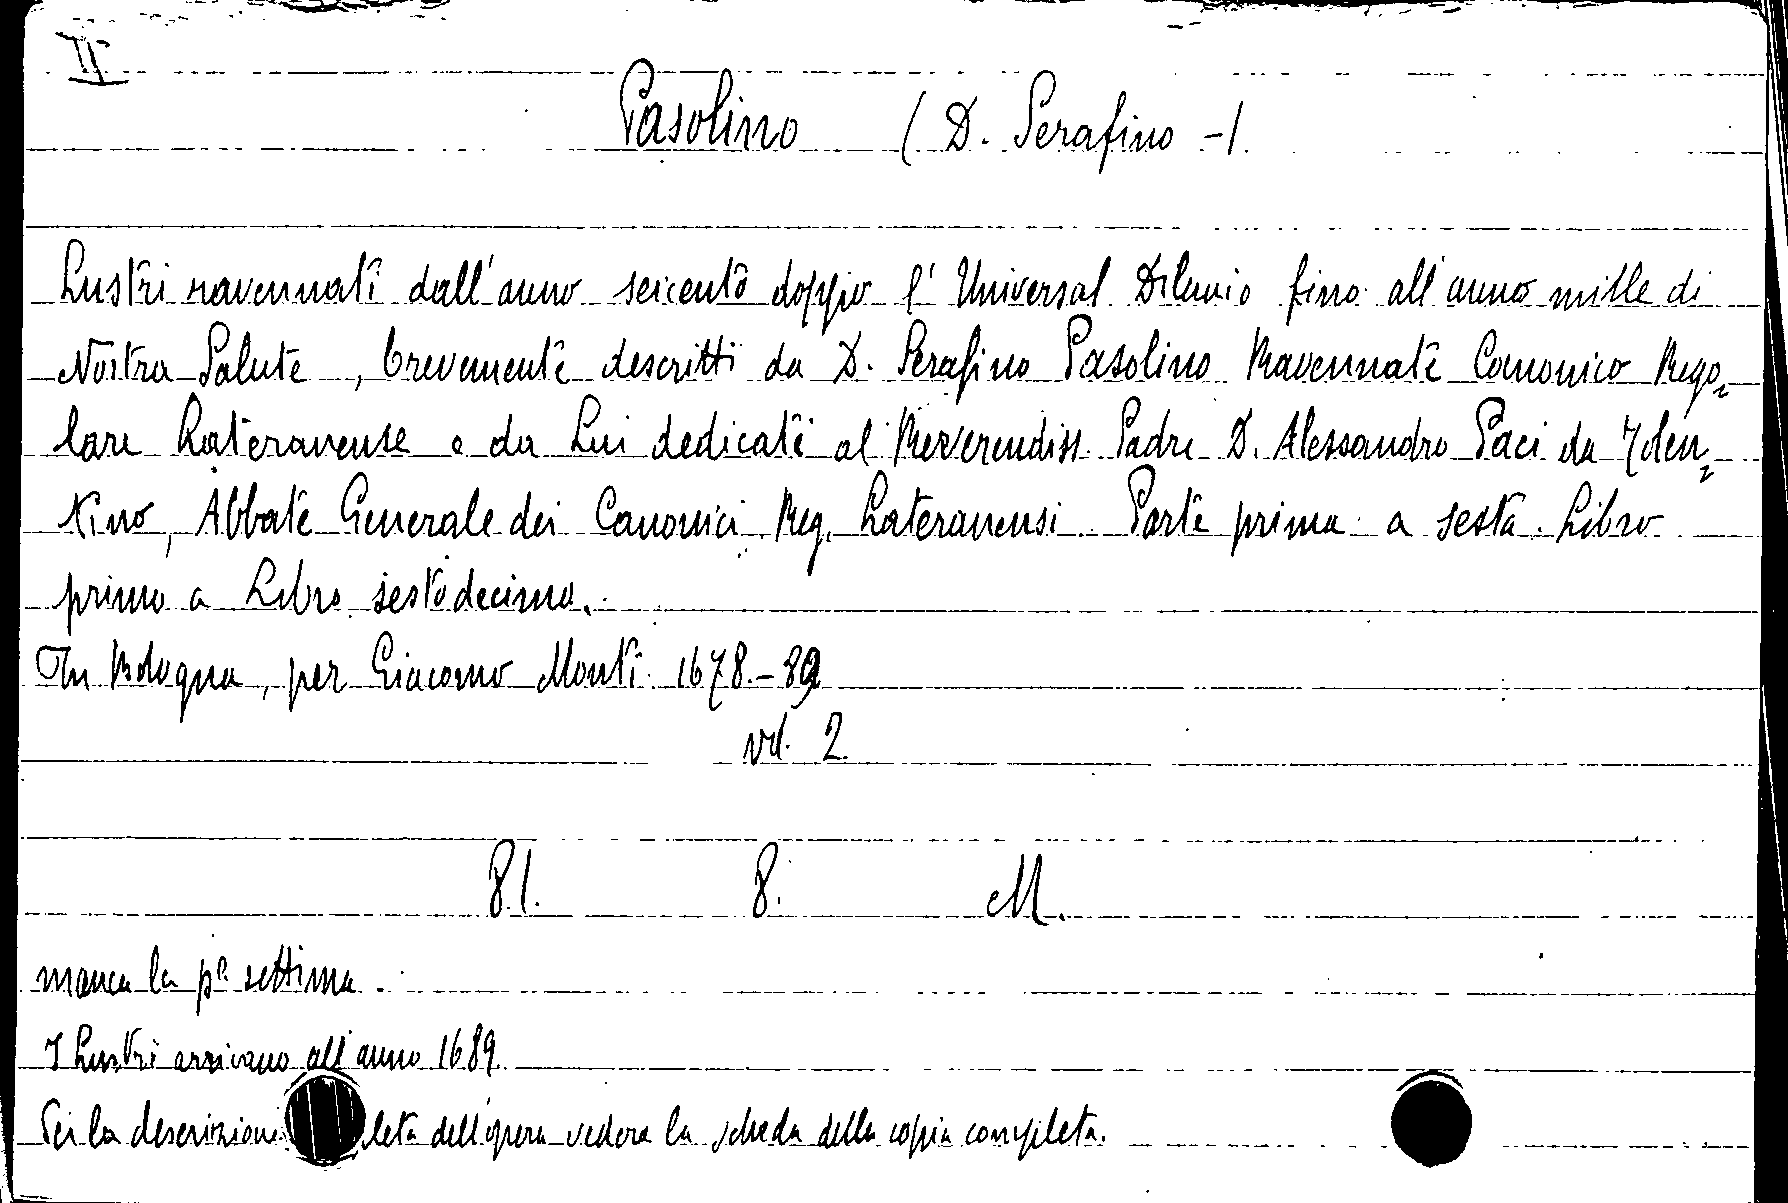 II
Pasolino ( D. Serafino -)
Lustri ravennati dall'anno seicento doppio l'Universal Diluvio fino all'anno mille di
Nostra Salute, brevemente descritti da D. Serafino Pasolino Ravennate Canonico Rego=
lare Lateranense e da Lui dedicati al Reverendiss. Padre D. Alessandro Paci da Iden=
tino, Abbate Generale dei Canonici Reg. Lateranensi. Parte prima a sesta. Libro
primo a Libro sestodecimo.
In Bologna, per Giacomo Monti 1678-89
vol. 2
81. 8. M.
manca la pe settima.
I Lustri arrivano all'anno 1689.
Per la descrizione leta dell'opera vedere la scheda della copia completa.